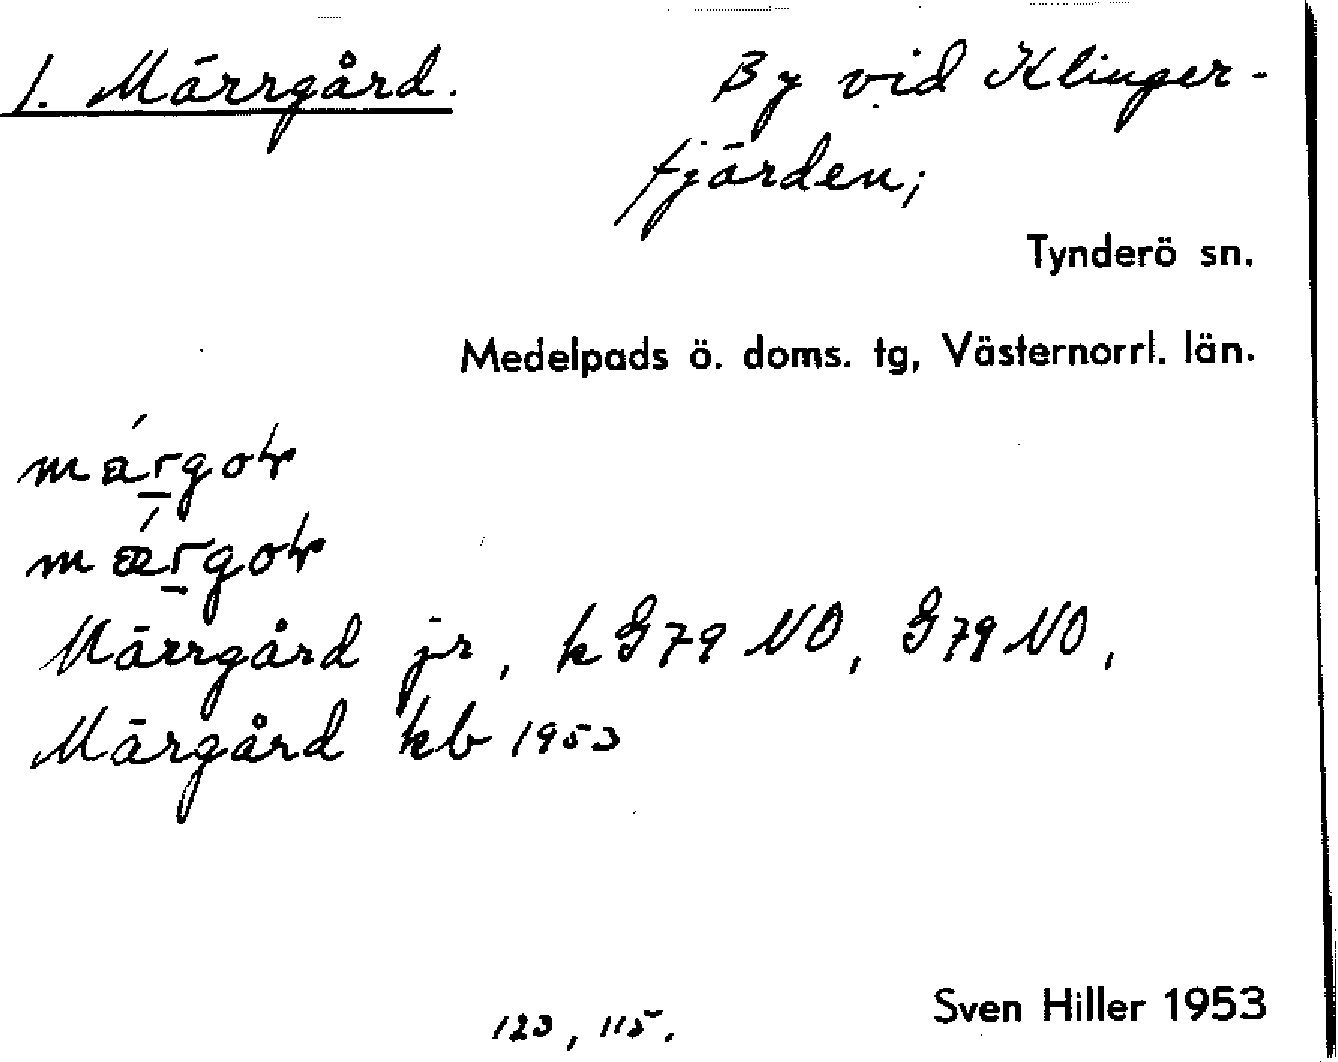 1. Märrgård. By vid Klinger-
fjärden;
Tynderö sn.
Medelpads ö. doms. tg, Västernorrl. län.
Märrgård jr, k G 79 NO, G 79 NO,
Märgård kb 1953
123, 115.
Sven Hiller 1953